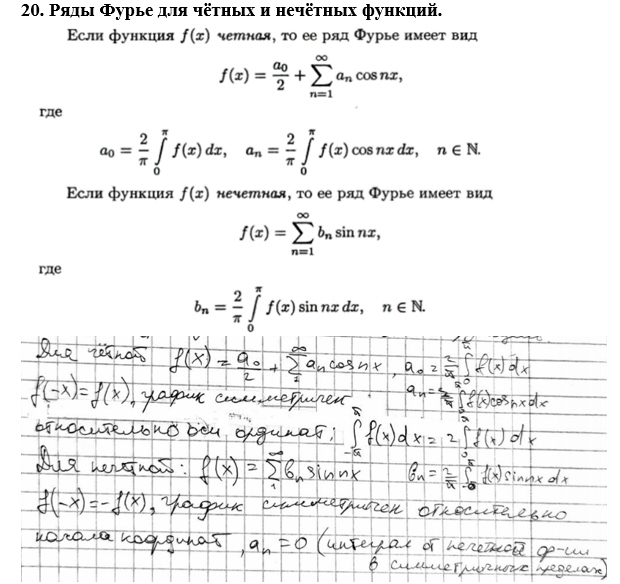 20. Ряды Фурье для чётных и нечётных функций.
Если функция f(x) четная, то ее ряд Фурье имеет вид
f(x) = a₀/2 + ∑_{n=1}^{∞} aₙ cos nx,
где
a₀ = 2/π ∫_0^π f(x) dx, aₙ = 2/π ∫_0^π f(x) cos nx dx, n ∈ ℕ.
Если функция f(x) нечетная, то ее ряд Фурье имеет вид
f(x) = ∑_{n=1}^{∞} bₙ sin nx,
где
bₙ = 2/π ∫_0^π f(x) sin nx dx, n ∈ ℕ.
Для чётной f(x) = a₀/2 + ∑_1^∞ aₙ cos nx, a₀ = 2/π ∫_0^π f(x) dx
f(-x) = f(x), график симметричен aₙ = 2/π ∫_0^π f(x) cos nx dx
относительно оси ординат; ∫_{-π}^π f(x) dx = 2 ∫_0^π f(x) dx
Для нечетной: f(x) = ∑_1^∞ bₙ sin nx bₙ = 2/π ∫_0^π f(x) sin nx dx
f(-x) = -f(x), график симметричен относительно
начала координат, aₙ = 0 (интеграл от нечетной ф-ии
в симметричных пределах)